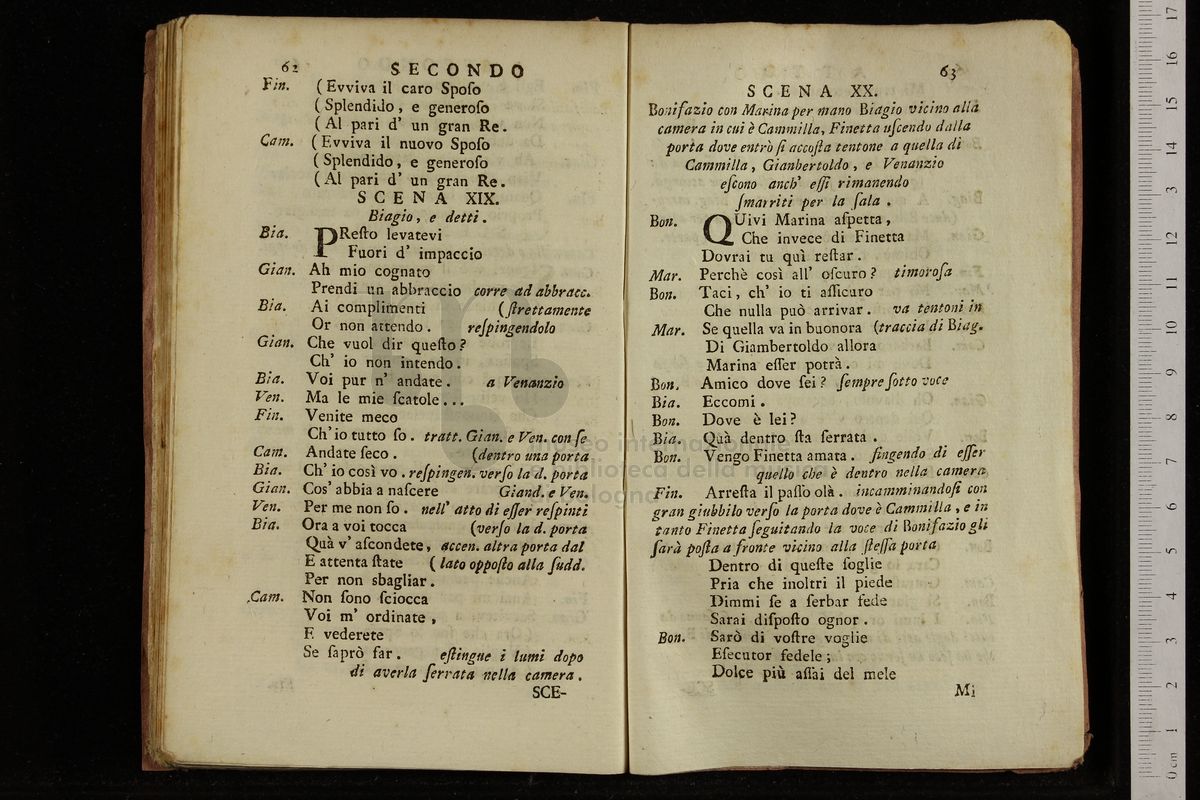 62
SECONDO
Fin. (Evviva il caro Spoſo
(Splendido, e generoſo
(Al pari d' un gran Re.
Cam. (Evviva il nuovo Spoſo
(Splendido, e generoſo
(Al pari d' un gran Re.
SCENA XIX.
Biagio, e detti.
Bia. PReſto levatevi
Fuori d' impaccio
Gian. Ah mio cognato
Prendi un abbraccio corre ad abbracc.
Bia. Ai complimenti (ſtrettamente
Or non attendo. reſpingendolo
Gian. Che vuol dir queſto?
Ch' io non intendo.
Bia. Voi pur n' andate. a Venanzio
Ven. Ma le mie ſcatole...
Fin. Venite meco
Ch' io tutto ſo. tratt. Gian. e Ven. con ſe
Cam. Andate ſeco. (dentro una porta
Bia. Ch' io così vo. reſpingen. verſo la d. porta
Gian. Cos' abbia a naſcere Giand. e Ven.
Ven. Per me non ſo. nell' atto di eſſer reſpinti
Bia. Ora a voi tocca (verſo la d. porta
Quà v' aſcondete, accen. altra porta dal
E attenta ſtate (lato oppoſto alla ſudd.
Per non sbagliar.
Cam. Non ſono ſciocca
Voi m' ordinate,
E vederete
Se ſaprò far. eſtingue i lumi dopo
di averla ſerrata nella camera.
SCE-
63
SCENA XX.
Bonifazio con Marina per mano Biagio vicino alla
camera in cui è Cammilla, Finetta uſcendo dalla
porta dove entrò ſi accoſta tentone a quella di
Cammilla, Gianbertoldo, e Venanzio
eſcono anch' eſſi rimanendo
ſmarriti per la ſala.
Bon. QUivi Marina aſpetta,
Che invece di Finetta
Dovrai tu quì reſtar.
Mar. Perchè così all' oſcuro? timoroſa
Bon. Taci, ch' io ti aſſicuro
Che nulla può arrivar. va tentoni in
Mar. Se quella va in buonora (traccia di Biag.
Di Giambertoldo allora
Marina eſſer potrà.
Bon. Amico dove ſei? ſempre ſotto voce
Bia. Eccomi.
Bon. Dove è lei?
Bia. Quà dentro ſta ſerrata.
Bon. Vengo Finetta amata. fingendo di eſſer
quello che è dentro nella camera
Fin. Arreſta il paſſo olà. incamminandoſi con
gran giubbilo verſo la porta dove è Cammilla, e in
tanto Finetta ſeguitando la voce di Bonifazio gli
ſarà poſta a fronte vicino alla ſteſſa porta
Dentro di queſte ſoglie
Pria che inoltri il piede
Dimmi ſe a ſerbar fede
Sarai diſpoſto ognor.
Bon. Sarò di voſtre voglie
Eſecutor fedele;
Dolce più aſſai del mele
Mi